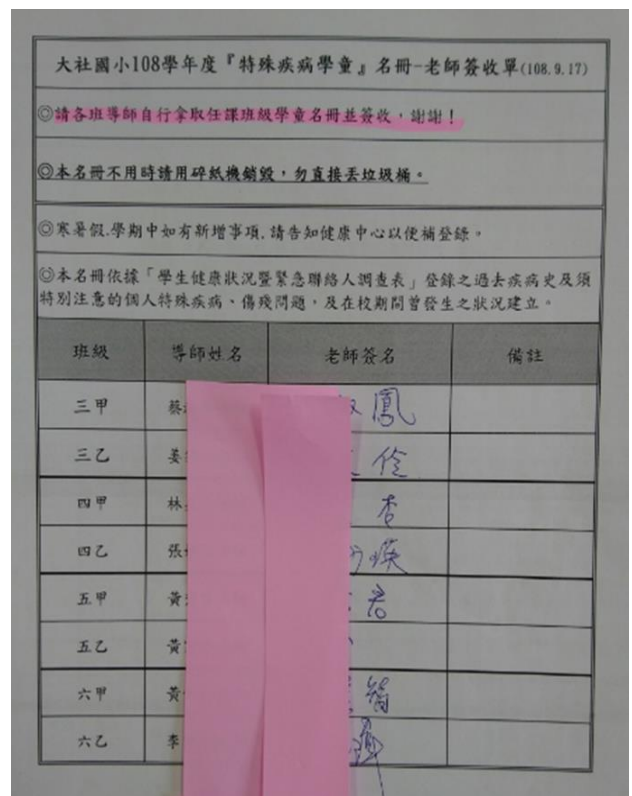 大社國小108學年度『特殊疾病學童』名冊-老師簽收單(108.9.17)
◎請各班導師自行拿取任課班級學童名冊並簽收,謝謝!
◎本名冊不用時請用碎紙機銷毀,勿直接丟垃圾桶。
◎寒暑假.學期中如有新增事項.請告知健康中心以便補登錄。
◎本名冊依據「學生健康狀況暨緊急聯絡人調查表」登錄之過去疾病史及須
特別注意的個人特殊疾病、傷殘問題,及在校期間曾發生之狀況建立。
班級 導師姓名 老師簽名 備註
三甲 蔡 鳳
三乙 姜 伶
四甲 林 杏
四乙 張 瑛
五甲 黃 君
五乙 黃
六甲 黃
六乙 李